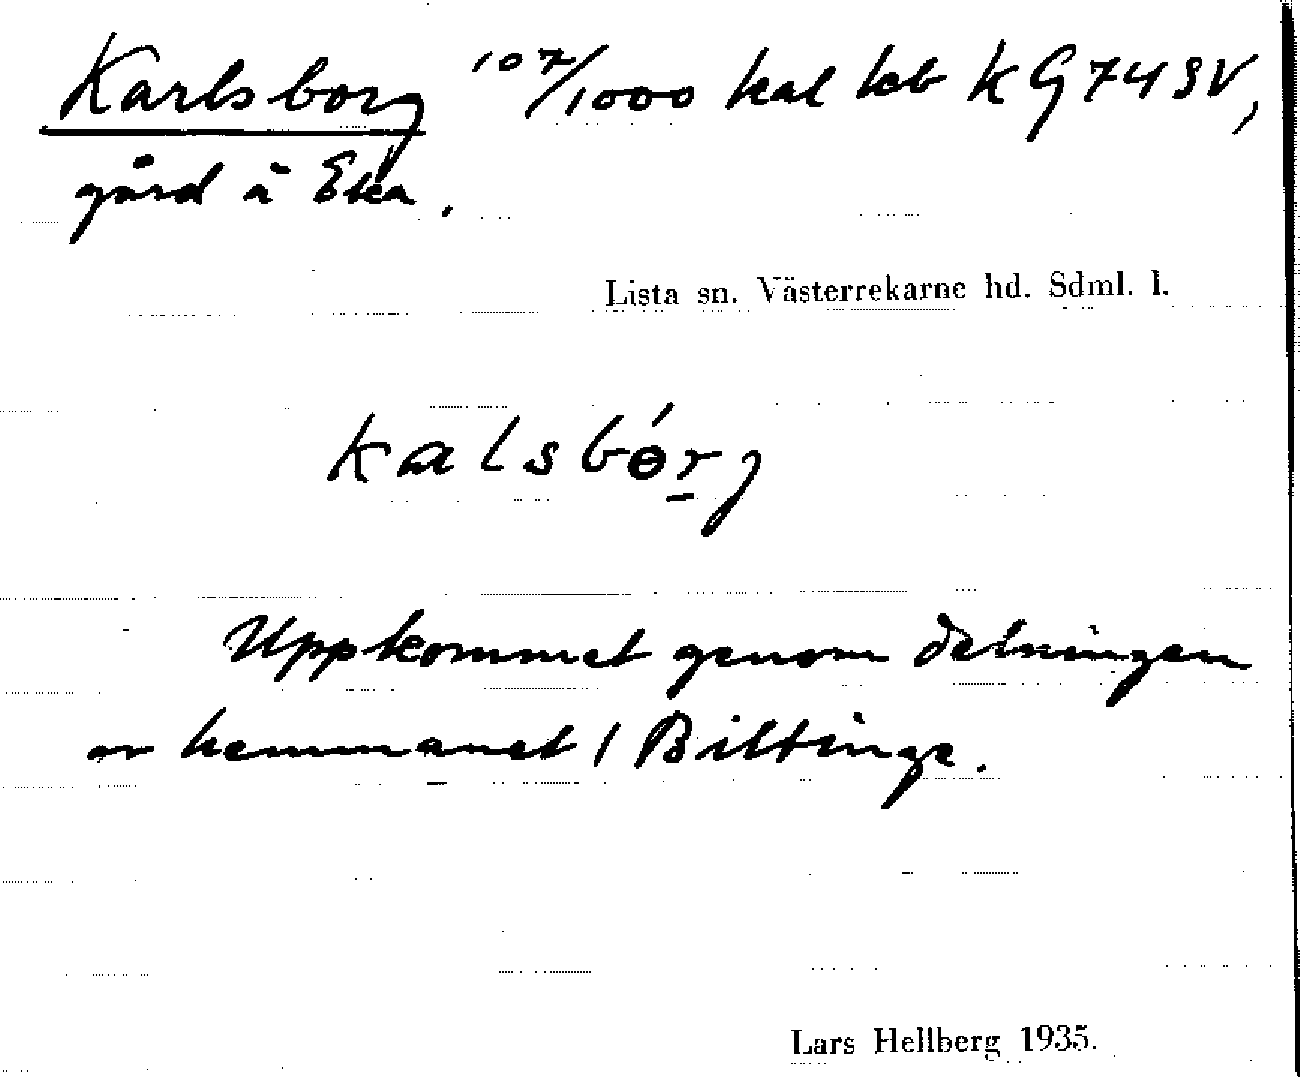 Karlsborg 107/1000 kal kb kG74SV,
gård å Eka.
Lista sn. Västerrekarne hd. Sdml. l.
kalsbɵ́r̲j
Uppkommet genom delningen
av hemmanet 1 Biltinge.
Lars Hellberg 1935.